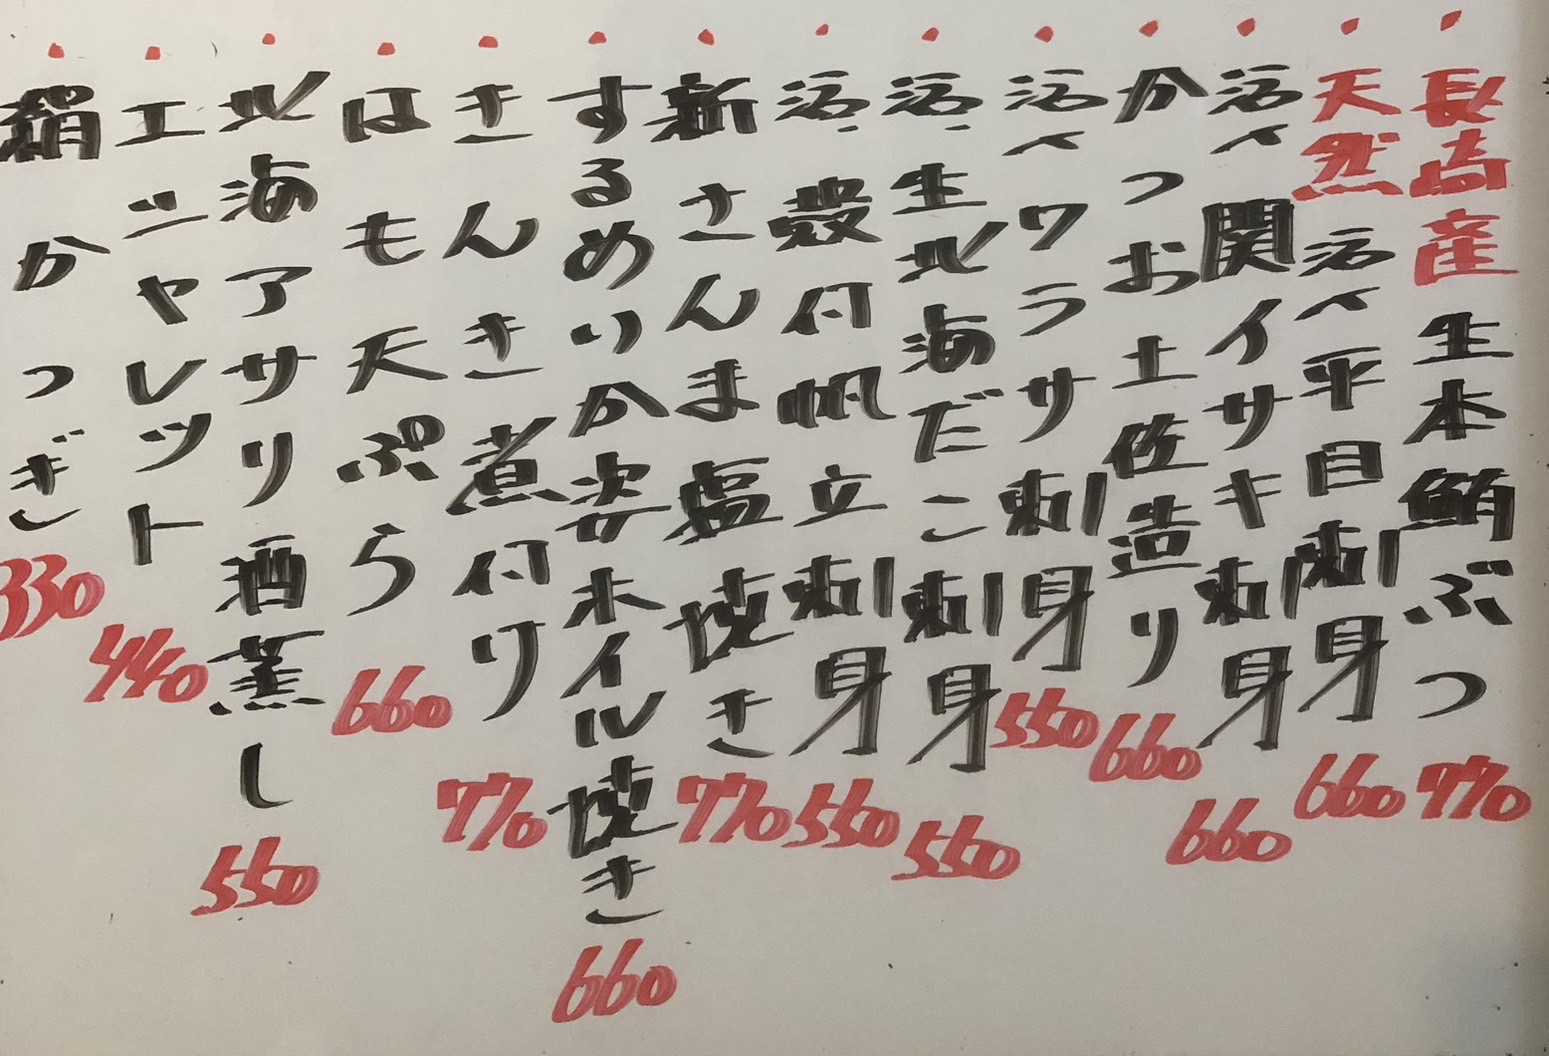 ・長崎産 生本鮪ぶつ 770
・天然 活〆平目刺身 660
・活〆関イサキ刺身 660
・かつお土佐造り 660
・活〆ワラサ刺身 550
・活生北海だこ刺身 550
・活殻付帆立刺身 550
・新さんま塩焼き 770
・するめいか姿ホイル焼き 660
・きんき煮付け 770
・はも天ぷら 660
・北海アサリ酒蒸し 550
・エシャレット 440
・絹かつぎ 330